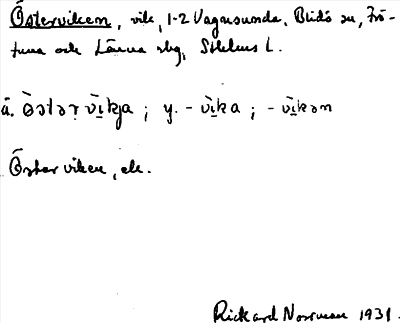 Österviken, vik, 1-2 Vagnsunda, Blidö sn, Frö-
tuna och Länna skg, Sthlms L.
ä. ö̀stər vì̱kja ; y. - vì̱ka ; - vì̱kən
Österviken, ek.
Rickard Norrman 1931.